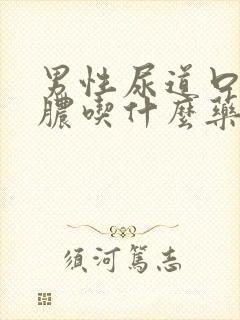 男性尿道口
膿喫什麼藥
須河篤志